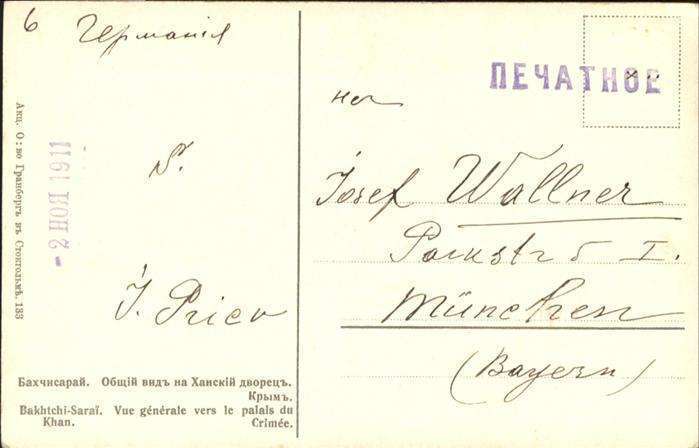 6
Германія
ПЕЧАТНОЕ
Josef Wallner
Parkstr 5 I.
München
(Bayern)
- 2 НОЯ 1911
Акц. О: во Гранбергъ въ Стокгольмѣ. 133
Бахчисарай. Общій видъ на Ханскій дворецъ.
Крымъ.
Bakhtchi-Saraï. Vue générale vers le palais du
Khan. Crimée.